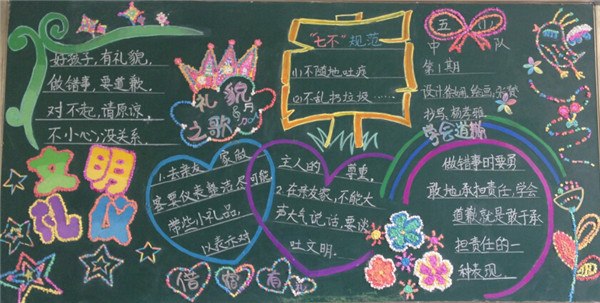 好孩子,有礼貌,
做错事,要道歉.
对不起,请原谅
不小心,没关系.
礼貌
之歌
“七不”规范
(1)不随地吐痰
(2)不乱扔垃圾……
五(1)
中队
第1期
抄写:杨
学会道歉
文明
礼仪
1.去亲友家做
客要仪表整洁,尽可能
带些小礼品,
以表示对
主人的尊重.
2.在亲友家,不能大
声大气说话,要谈
吐文明.
做错事时要勇
敢地承担责任,学会
道歉就是敢于承
担责任的一
种表现.